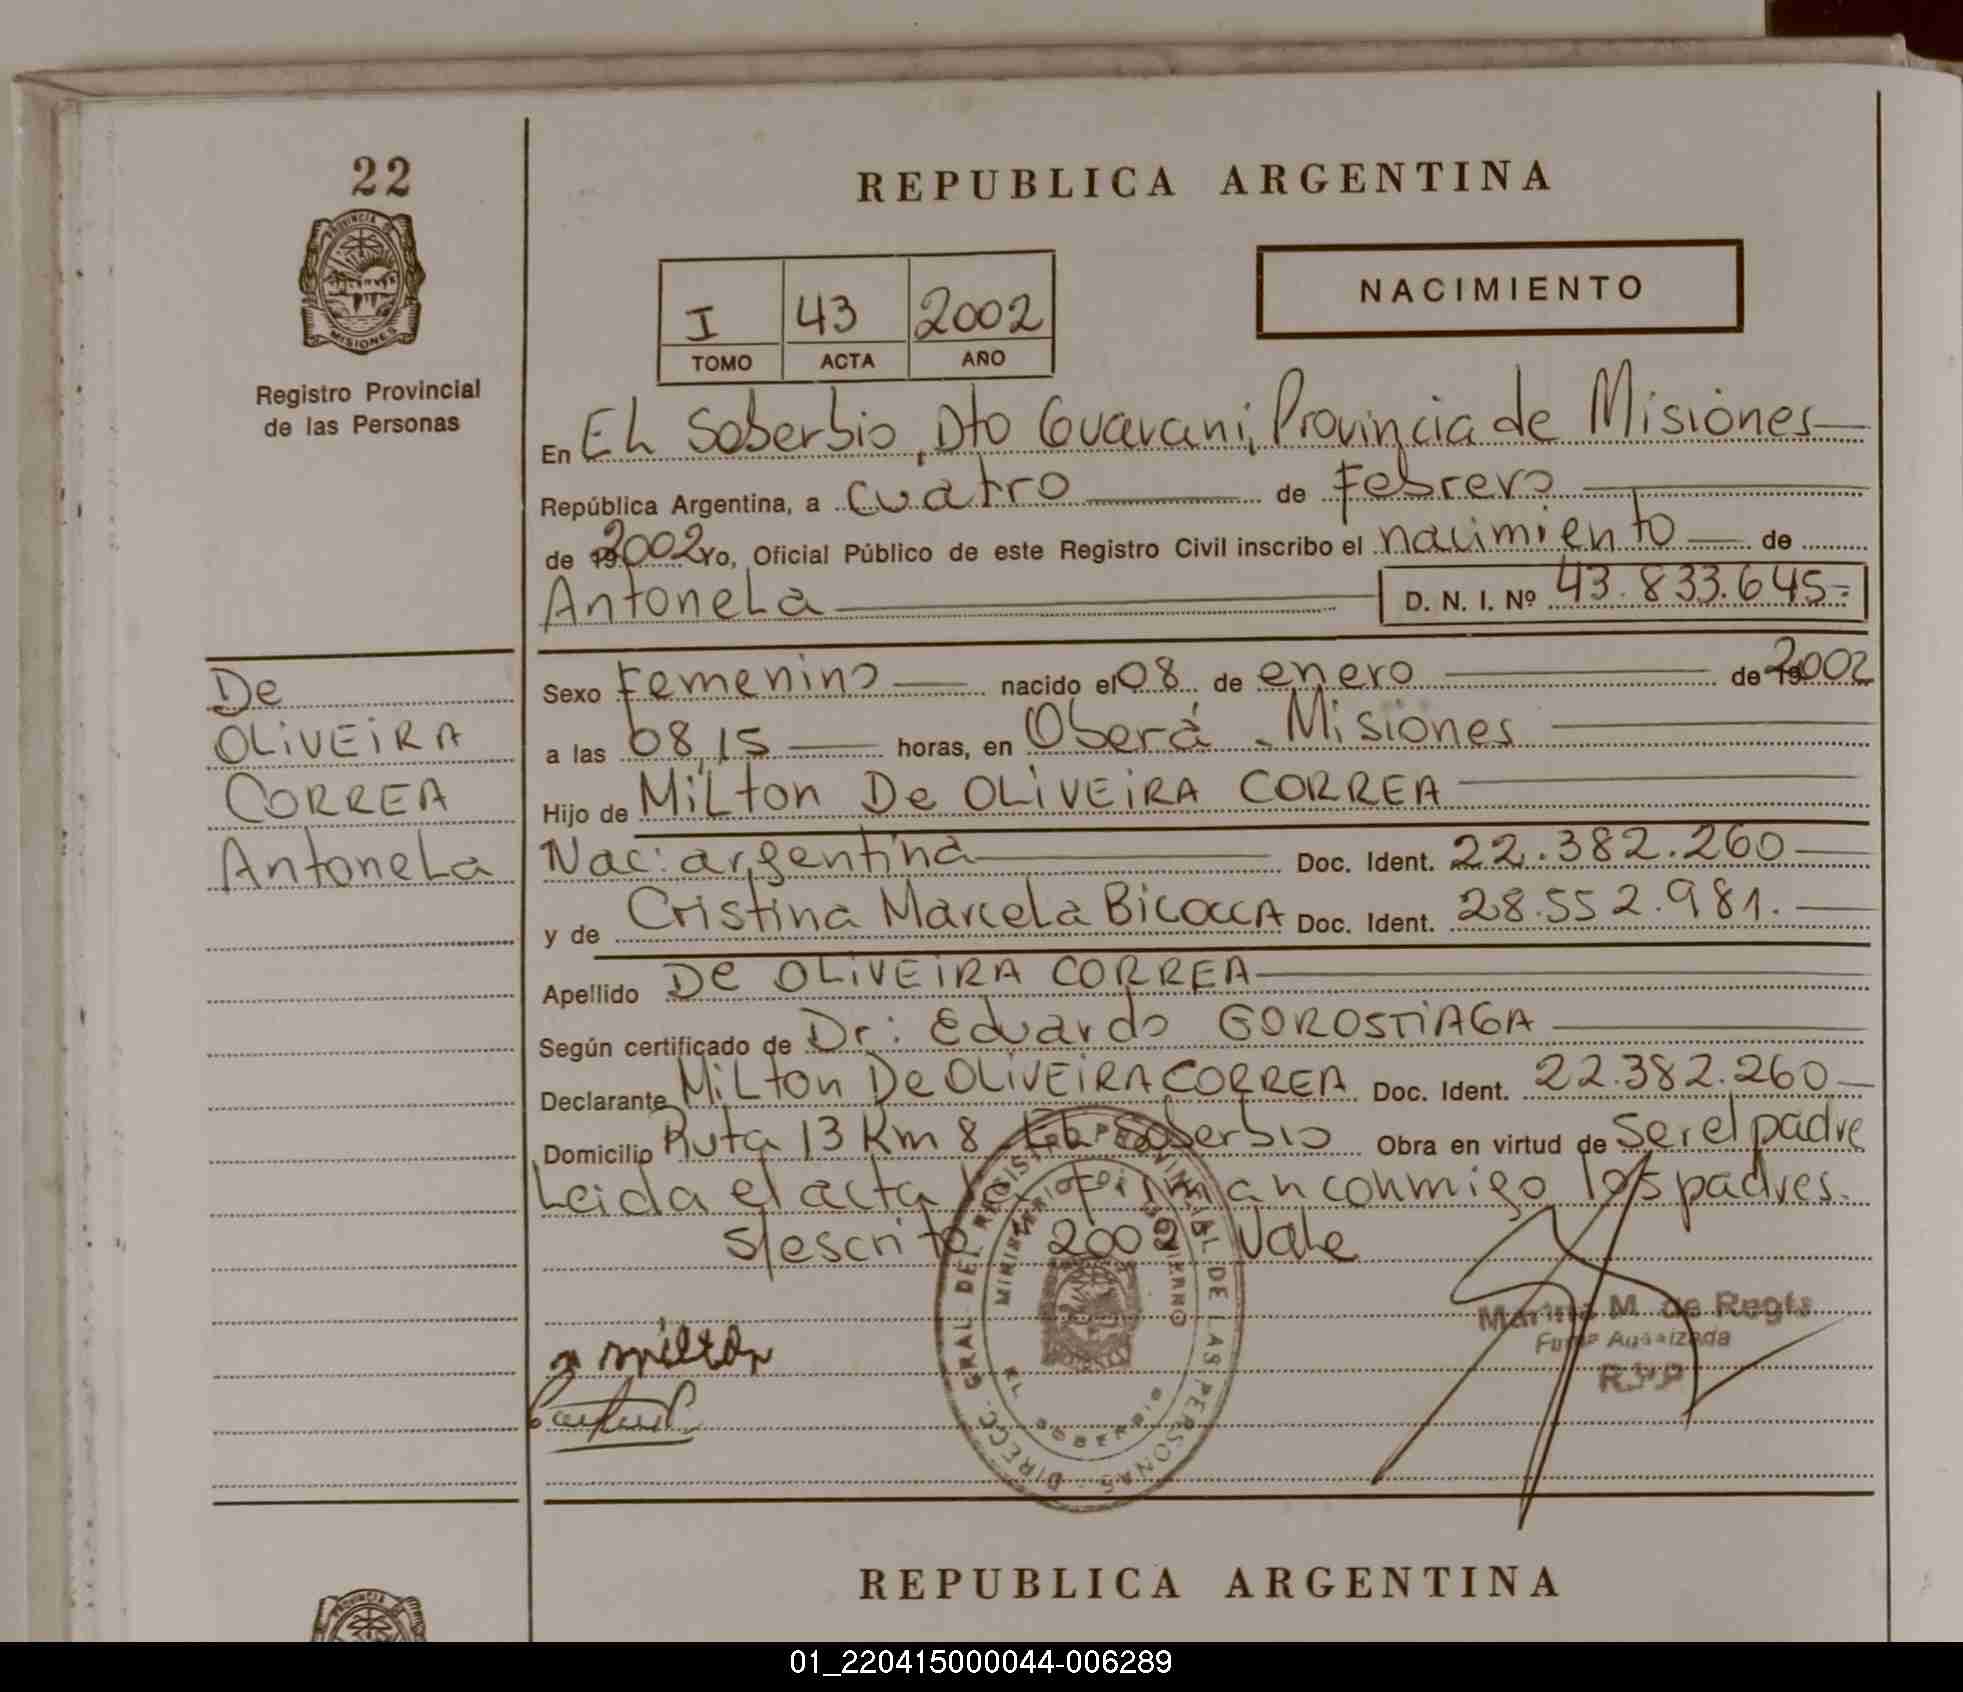 22
PROVINCIA DE
MISIONES
Registro Provincial
de las Personas
REPUBLICA ARGENTINA
I 43 2002
TOMO ACTA AÑO
NACIMIENTO
En EL Soberbio, Dto Guarani, Provincia de Misiones
República Argentina, a cuatro de Febrero
de 2002 Yo, Oficial Público de este Registro Civil inscribo el nacimiento de
AntoneLa D. N. I. Nº 43.833.645=
De
OLiVEiRA
CORREA
AntoneLa
Sexo Femenino nacido el 08 de enero de 2002
a las 08,15 horas, en Oberá - Misiones
Hijo de MiLton De OLiVEiRA CORREA
Nac: argentina Doc. Ident. 22.382.260
y de Cristina Marcela BicoccA Doc. Ident. 28.552.981.
Apellido De OLiVEiRA CORREA
Según certificado de Dr: Eduardo GOROSTiAGA
Declarante MiLton De OLiVEiRA CORREA Doc. Ident. 22.382.260
Domicilio Ruta 13 Km 8 EL Soberbio Obra en virtud de ser el padre
Leida el acta la firman conmigo los padres.
s/escrito 2002 Vale
DIRECC. GRAL DEL REGISTRO PROVINCIAL DE LAS PERSONAS
MINISTERIO DE GOBIERNO
EL SOBERBIO
milton
Marina M. de Regis
Firma Autorizada
R.P.P
REPUBLICA ARGENTINA
01_220415000044-006289